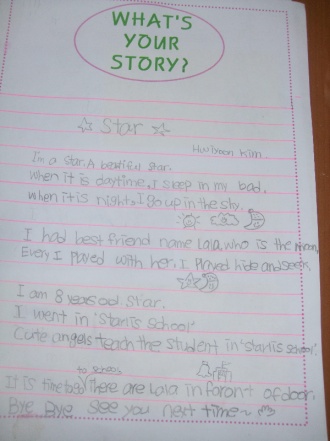 WHAT'S
YOUR
STORY?
Star
I'm a star. A beatiful star.
when it is daytime, I sleep in my bad.
when it is night, I go up in the sky.
I had best friend name Lala, who is the moon,
Every I played with her, I played hide and seek.
I am 8 years old star.
I went in 'star's school'
Cute angels teach the student in 'star's school'.
to school
It is time to go there are Lala in foront of door.
Bye Bye see you next time~